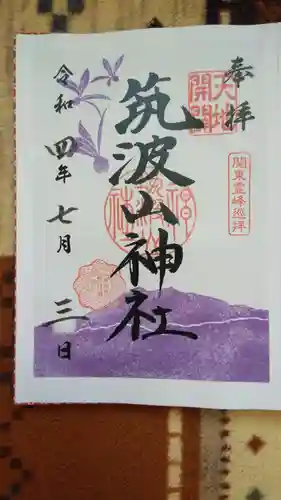 奉拝
天地開闢
関東霊峰巡拝
筑波山神社
令和四年七月三日